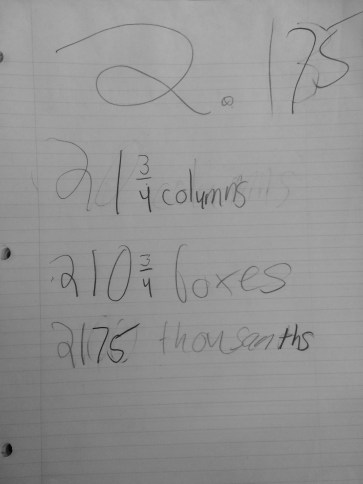 2.175
21 3/4 columns
210 3/4 boxes
2175 thousanths